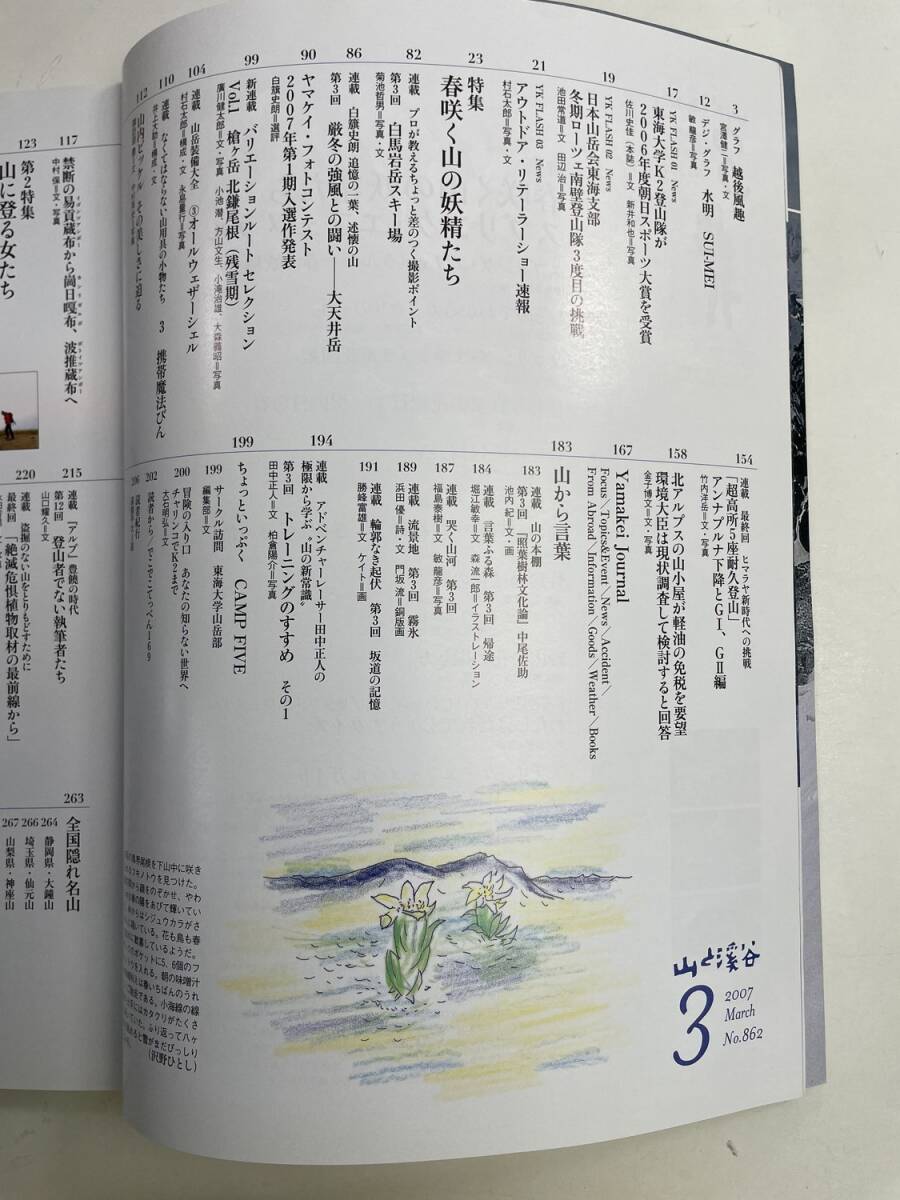 3
グラフ 越後風趣
宮澤健二=写真・文
12
デジ・グラフ 水明 SUI-MEI
敏 龍彦=写真・文
17
YK FLASH 01 News
東海大学K2登山隊が
2006年度朝日スポーツ大賞を受賞
佐川史佳(本誌)=文 新井和也=写真
19
YK FLASH 02 News
日本山岳会東海支部
冬期ローツェ南壁登山隊 3度目の挑戦
池田常道=文 田辺 治=写真
21
YK FLASH 03 News
アウトドア・リテーラーショー速報
村石太郎=写真・文
23
特集
春咲く山の妖精たち
82
連載 プロが教えるちょっと差のつく撮影ポイント
第3回 白馬岩岳スキー場
菊池哲男=写真・文
86
連載 白籏史朗 追憶の一葉、述懐の山
第3回 厳冬の強風との闘い——大天井岳
90
ヤマケイ・フォトコンテスト
2007年第1期入選作発表
白籏史朗=選評
99
新連載 バリエーションルート セレクション
Vol.1 槍ヶ岳 北鎌尾根(残雪期)
廣川健太郎=文・写真 小池 潜、方山文生、小滝治雄、大森義昭=写真
104
連載 山岳装備大全 ③オールウェザーシェル
村石太郎=構成・文 永易量行=写真
110
連載 なくてはならない山用具の小物たち 3 携帯魔法びん
井上大助=構成・文
112
山内ピッケルの美しさに迫る
117
禁断の易貢蔵布から崗日嘎布、波推蔵布へ
中村 保=文・写真
123
第2特集
山に登る女たち
154
連載 最終回 ヒマラヤ新時代への挑戦
「超高所5座耐久登山」
アンナプルナ下降とGⅠ、GⅡ編
竹内洋岳=文・写真
158
北アルプスの山小屋が軽油の免税を要望
環境大臣は現状調査して検討すると回答
金子博文=文・写真
167
Yamakei Journal
Focus/Topics&Event/News/Accident/
From Abroad/Information/Goods/Weather/Books
183
山から言葉
183
連載 山の本棚
第3回 『照葉樹林文化論』中尾佐助
池内 紀=文・画
184
連載 言葉ふる森 第3回 帰途
堀江敏幸=文 森 流一郎=イラストレーション
187
連載 哭く山河 第3回
福島泰樹=文 敏 龍彦=写真
189
連載 流景地 第3回 霧氷
浜田 優=詩・文 門坂 流=銅版画
191
連載 輪郭なき起伏 第3回 坂道の記憶
勝峰富雄=文 ケイト=画
194
連載 アドベンチャーレーサー田中正人の
極限から学ぶ“山の新常識”
第3回 トレーニングのすすめ その1
田中正人=文 柏倉陽介=写真
199
ちょっといっぷく CAMP FIVE
199
サークル訪問 東海大学山岳部
編集部=文
200
冒険の入り口 あなたの知らない世界へ
チャリンコでK2まで
大石明弘=文
202
読者から/でこでこてっぺん169
206
読者紀行
215
連載 『アルプ』豊饒の時代
第12回 登山者でない執筆者たち
山口耀久=文
220
連載 盗掘のない山をとりもどすために
最終回 「絶滅危惧植物取材の最前線から」
263
全国隠れ名山
264 静岡県・大鐘山
266 埼玉県・仙元山
267 山梨県・神座山
尾根を下山中に咲き
フキノトウを見つけた。
から顔をのぞかせ、やわ
の陽をあびて輝いてい
からはシジュウカラがさ
いている。花も鳥も春
歓喜しているようだ。
ポケットに5、6個のフ
ウを入れる。朝の味噌汁
は春いちばんのうれ
である。小海線の線
にはカタクリがたくさ
ていた。ふり返って八ヶ
ると雲がまだびっしり
(沢野ひとし)
山と溪谷
3
2007
March
No.862